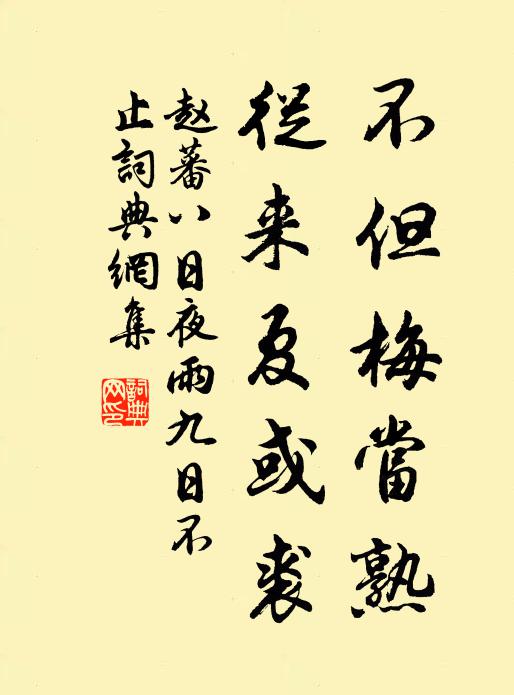 不但梅當熟
從来夏或裘
赵蕃八日夜雨九日不
止詞典網集
詞典
网印